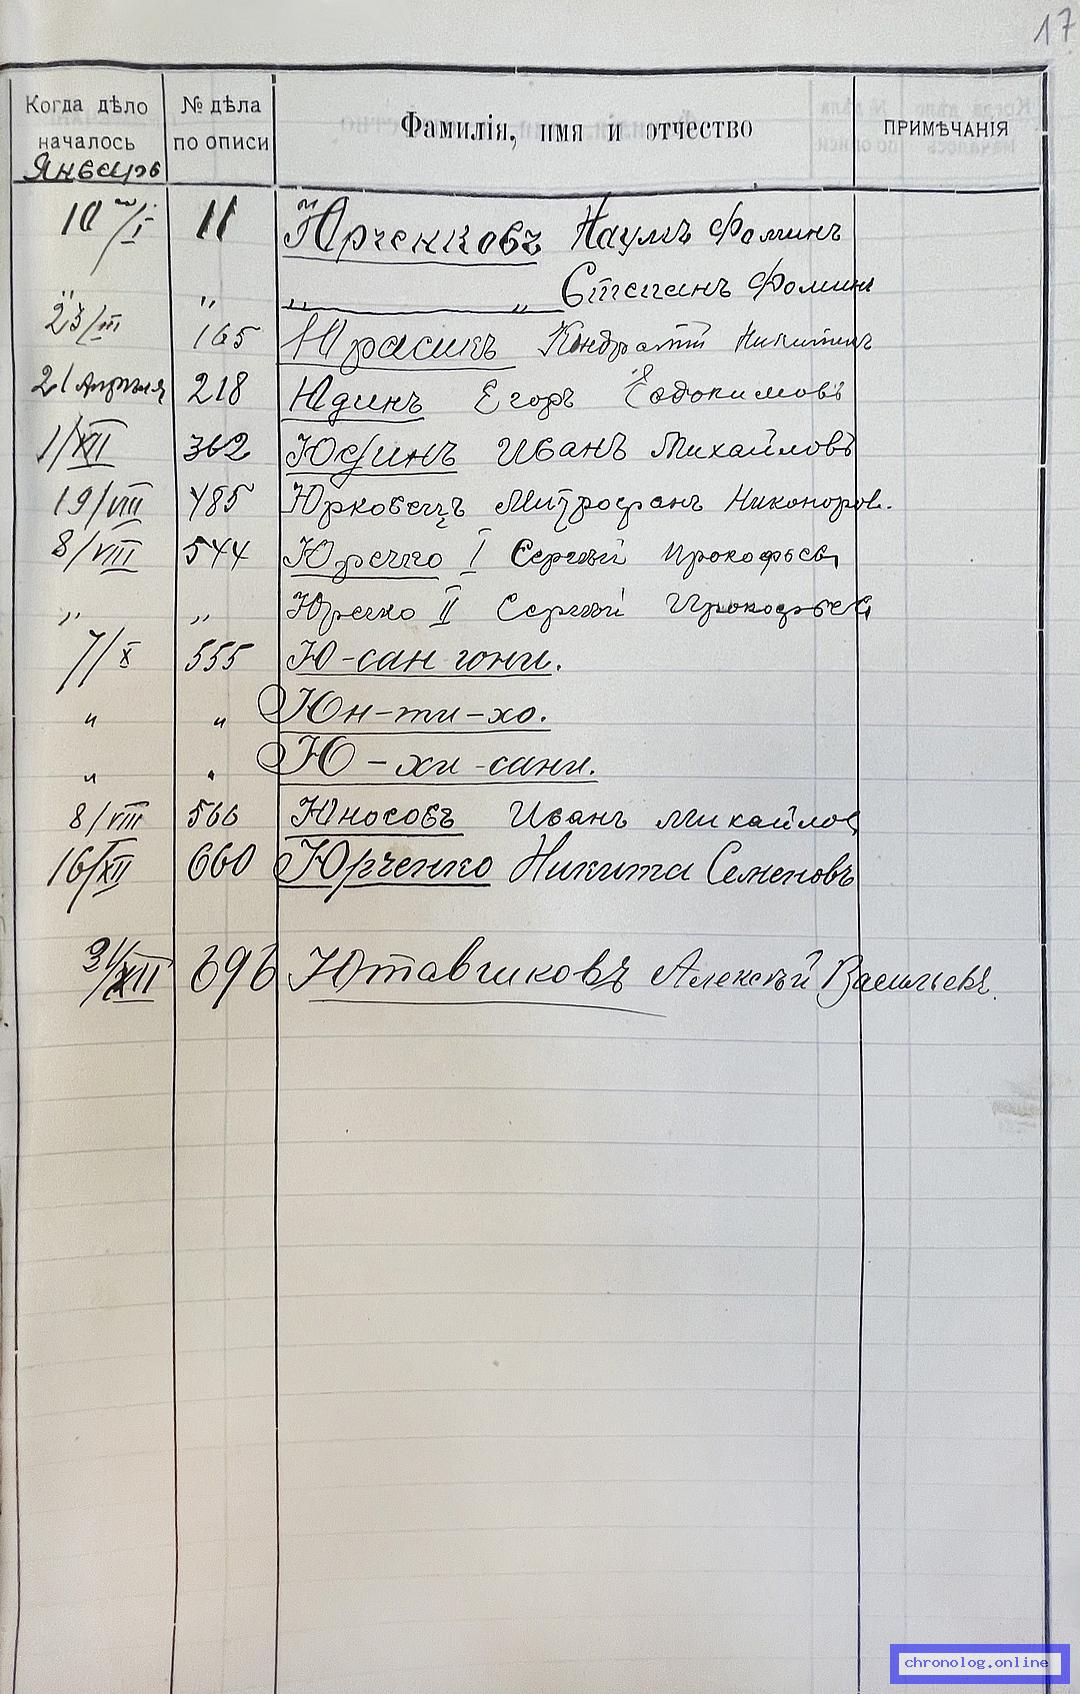 17
Когда дѣло началось № дѣла по описи Фамилія, имя и отчество ПРИМѢЧАНІЯ
Январь
10/I 11 Юрченковъ Наумъ Фоминъ
" " " " Степанъ Фоминъ
23/III 165 Юрасикъ Кондратій Никитинъ
21 Апрѣля 218 Юдинъ Егоръ Евдокимовъ
1/XII 362 Юдинъ Иванъ Михайловъ
19/VIII 485 Юрковецъ Митрофанъ Никоноров.
8/VIII 544 Юречко I Сергѣй Прокофьев
" " Юречко II Сергѣй Прокофьев
7/X 555 Ю-сан гони.
" " Юн-ти-хо.
" " Ю-хи-сани.
8/VIII 566 Юносовъ Иванъ Михайлов
16/XII 660 Юрченко Никита Семеновъ
31/XII 696 Ютавчиковъ Алексѣй Васильевъ.
chronolog.online